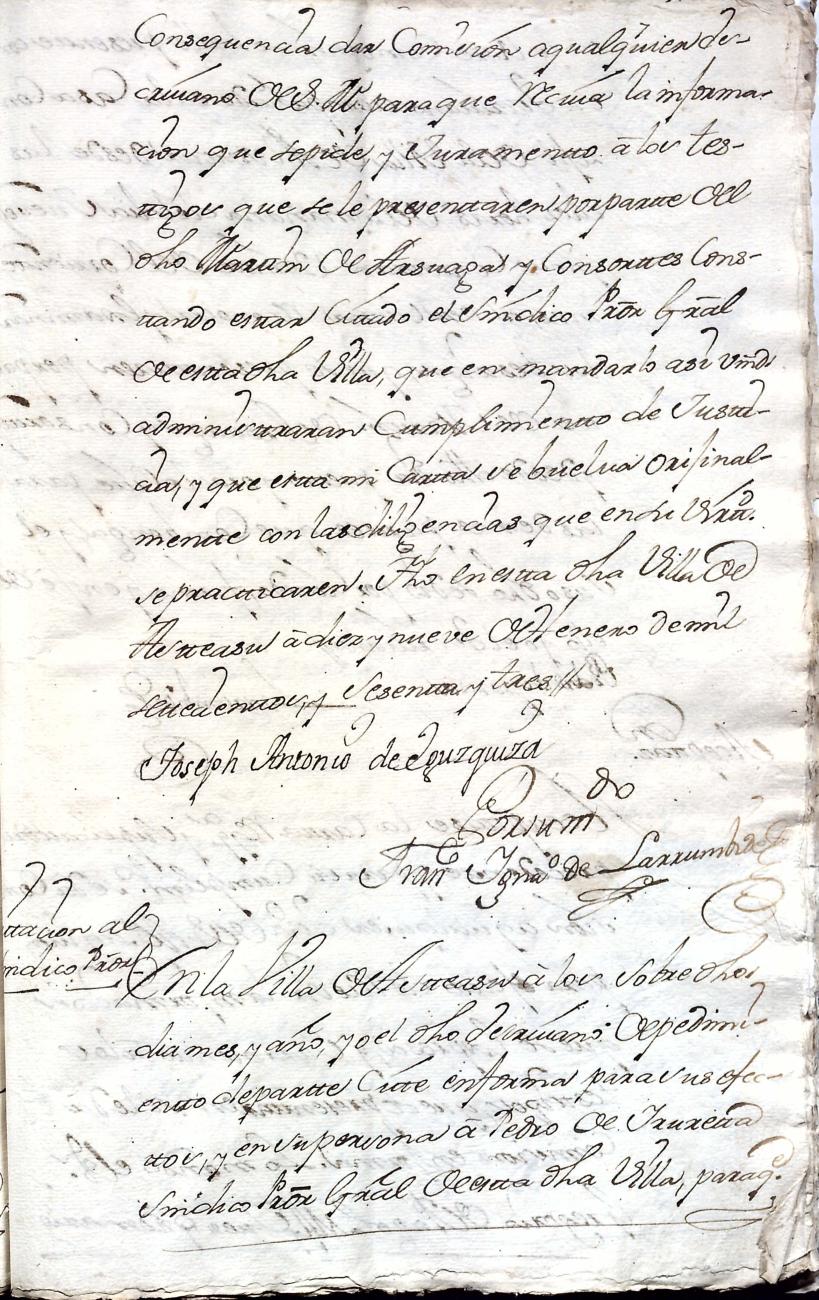 Consequencia dar Comision aqualquier es-
crivano de S. M. paraque Reciva la informa-
cion que sepide, y Juramentto â los tes-
ttigos que se le presenttaren porpartte del
dho Marttin de Arsuaga, y Consorttes Cons-
ttando esttar Cittado el Sindico Prõr Grãl
de estta dha Villa, que en mandarlo asi Vmds
administtraran Cumplimientto de Justti-
cia, y que estta mi Cartta se buelva orijinal-
mentte con las dilijencias que en su Virttd.
se practticaren. Fho en estta dha Villa de
Astteasu â diez y nueve de Henero de mil
settecienttos, y Sesentta y tres //
Joseph Antonio de Eguzquiza
Por su mdo
Franco Ignao de Larrumbide
ttacion al
indico Prõr
En la Villa de Astteasu â los sobre dhos
dia mes, y año, yo el dho escrivano de pedimi-
entto de partte Citte en forma para sus efec-
ttos, y en su persona â Pedro de Iruretta
Sindico Prõr Grãl de estta dha Villa, paraq.e